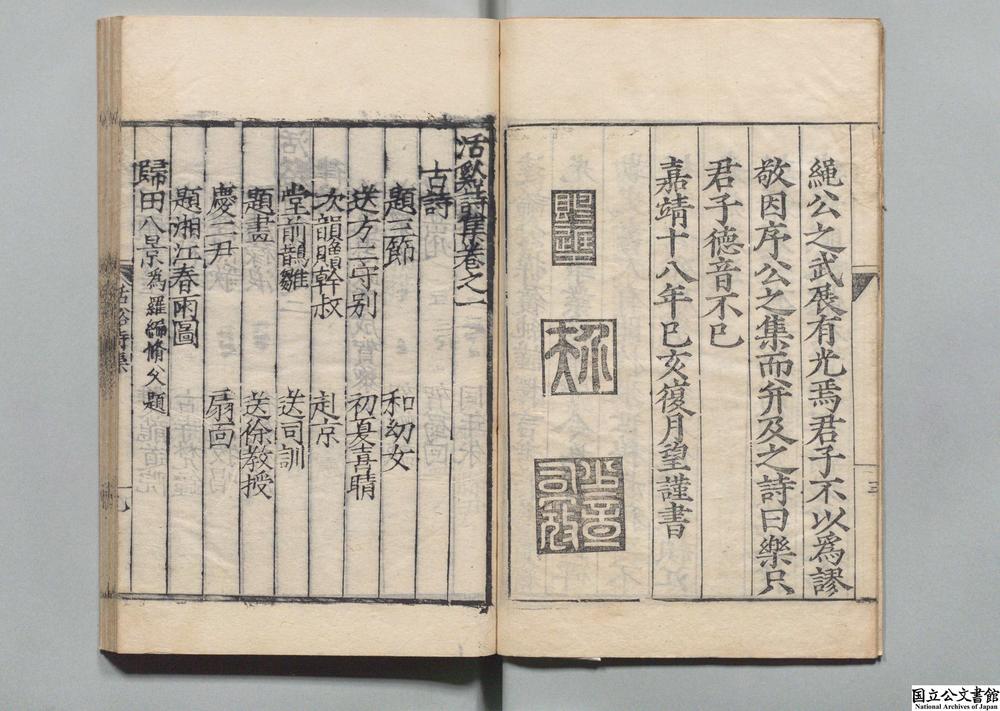 繩公之武展有光焉君子不以爲謬
敬因序公之集而并及之詩曰樂只
君子德音不已
嘉靖十八年巳亥復月望謹書
三
活谿詩集卷之一
古詩
題三節 和幼女
送方三守别 初夏喜晴
次韻贈幹叔 赴京
堂前鵲雛 送司訓
題畫 送徐教授
慶二尹 扇面
題湘江春雨圖
歸田八景爲羅編脩父題
活谿詩集
国立公文書館
National Archives of Japan